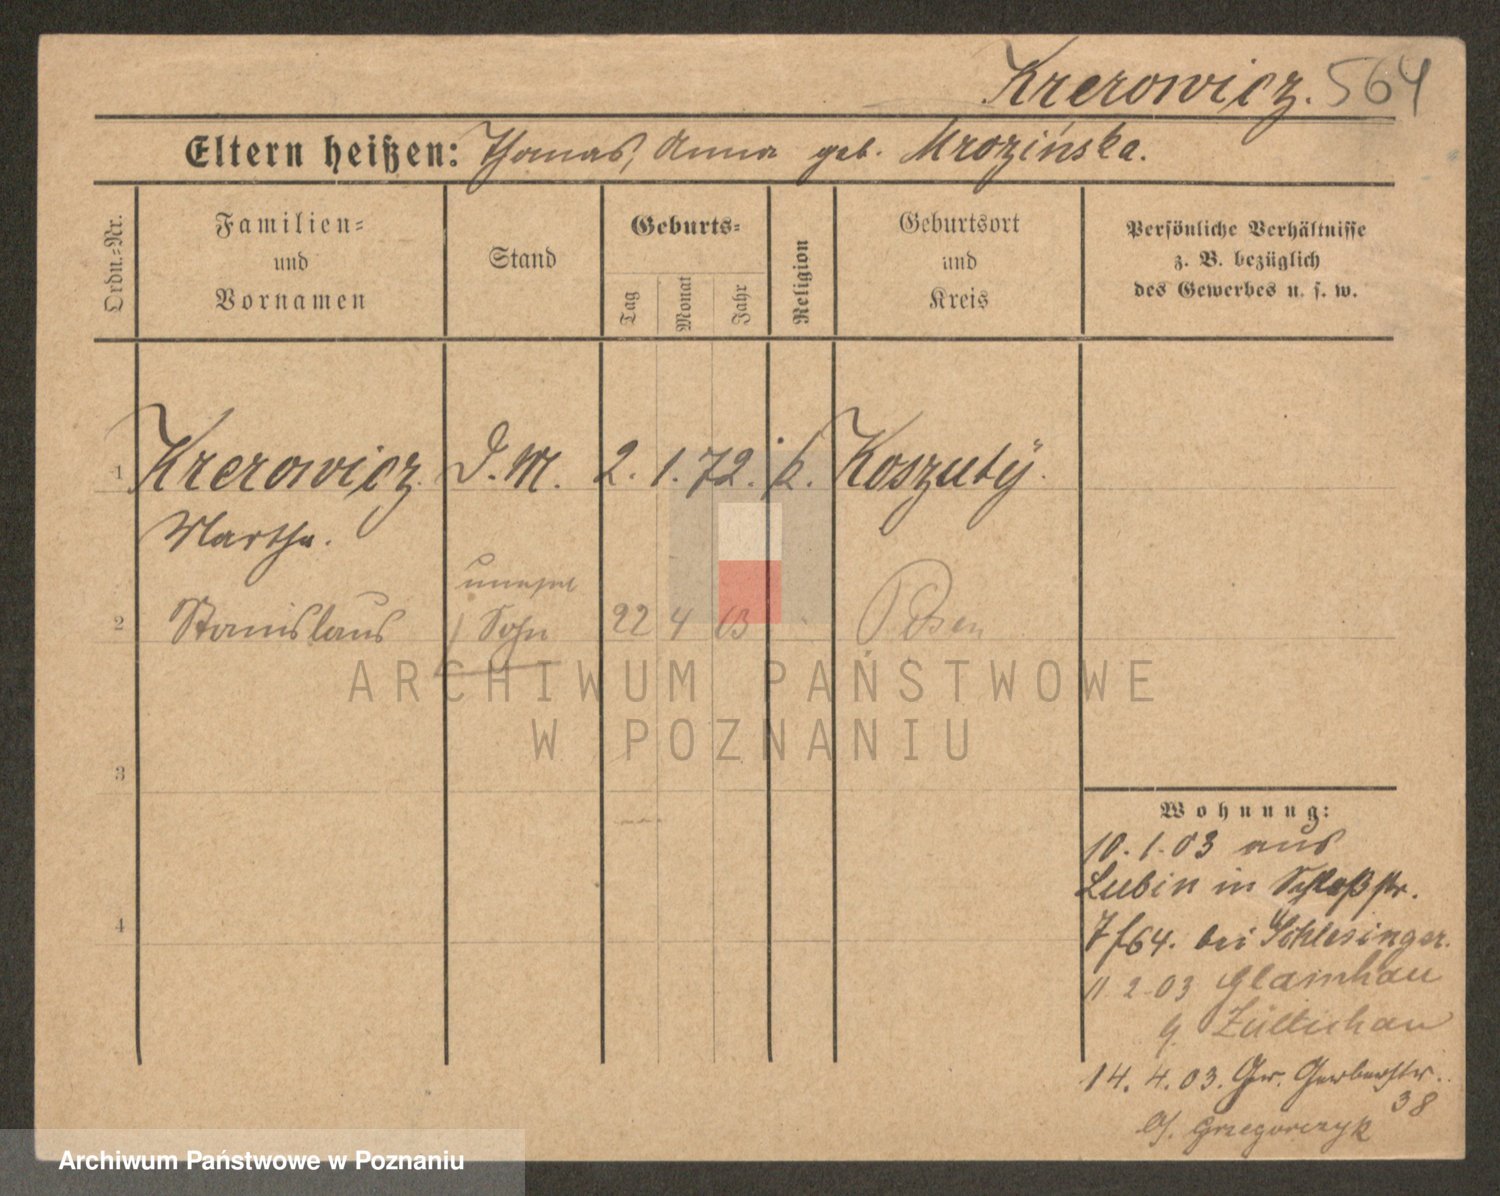 Krerowicz. 564
Eltern heißen: Thomas, Anna geb. Mrozińska.
Ordn.-Nr.
Familien-
und
Vornamen
Stand
Geburts-
Tag
Monat
Jahr
Religion
Geburtsort
und
Kreis
Persönliche Verhältnisse
z. B. bezüglich
des Gewerbes u. s. w.
1 Krerowicz D. M. 2. 1. 72. k. Koszuty.
Martha.
unehel
2 Stanislaus Sohn 22 4 03 Posen
ARCHIWUM PAŃSTWOWE
W POZNANIU
3
4
Wohnung:
10. 1. 03 aus
Lubin in Schloßstr.
7/64. bei Schlesinger.
11. 2. 03 Glamhau
Züllichau
14. 4. 03. Gr. Gerberstr.
38
b/. Grzegorczyk
Archiwum Państwowe w Poznaniu